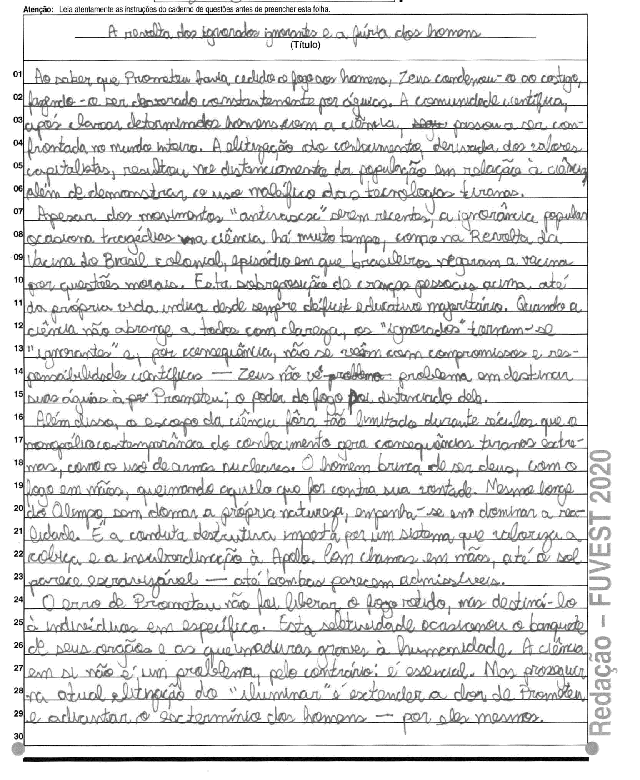 Atenção: Leia atentamente as instruções do caderno de questões antes de preencher esta folha.
A revolta dos ignorados ignorantes e a fúria dos homens
(Título)
01 Ao saber que Prometeu havia cedido o fogo aos homens, Zeus condenou-o ao castigo,
02 fazendo-o ser devorado constantemente por águias. A comunidade científica,
03 após clarear determinados homens com a ciência, passou a ser con-
04 frontada no mundo inteiro. A elitização do conhecimento, derivada dos valores
05 capitalistas, resultou no distanciamento da população em relação à ciência,
06 além de demonstrar o uso maléfico das tecnologias tiranas.
07 Apesar dos movimentos "antivacse" serem recentes, a ignorância popular
08 ocasiona tragédias na ciência há muito tempo, como na Revolta da
09 Vacina do Brasil colonial, episódio em que brasileiros negaram a vacina
10 por questões morais. Esta sobreposição de crenças pessoais acima até
11 da própria vida indica desde sempre déficit educativo majoritário. Quando a
12 ciência não abrange a todos com clareza, os "ignorados" tornam-se
13 "ignorantes" e, por consequência, não se veêm com compromissos e res-
14 ponsabilidades científicas — Zeus não vê problema problema em destinar
15 suas águias à Prometeu; o poder do fogo foi distanciado dele.
16 Além disso, o escopo da ciência fôra tão limitado durante séculos que o
17 monopólio contemporâneo do conhecimento gera consequências tiranas extre-
18 mas, como o uso de armas nucleares. O homem brinca de ser deus, com o
19 fogo em mãos, queimando aquilo que for contra sua vontade. Mesmo longe
20 do Olimpo, sem domar a própria natureza, empenha-se em dominar a rea-
21 lidade. É a conduta destrutiva imposta por um sistema que valoriza a
22 cobiça e a insubordinação à Apolo. Com chamas em mãos, até o sol
23 parece escravizável — até bombas parecem admissíveis.
24 O erro de Prometeu não foi liberar o fogo retido, mas destiná-lo
25 à indivíduos em específico. Esta seletividade ocasionou o banquete
26 de seus orgãos e as queimaduras graves à humanidade. A ciência
27 em si não é um problema, pelo contrário: é essencial. Mas prosseguir
28 na atual elitização do "iluminar" é extender a dor de Prometeu
29 e adiantar o extermínio dos homens — por eles mesmos.
30
Redação – FUVEST 2020